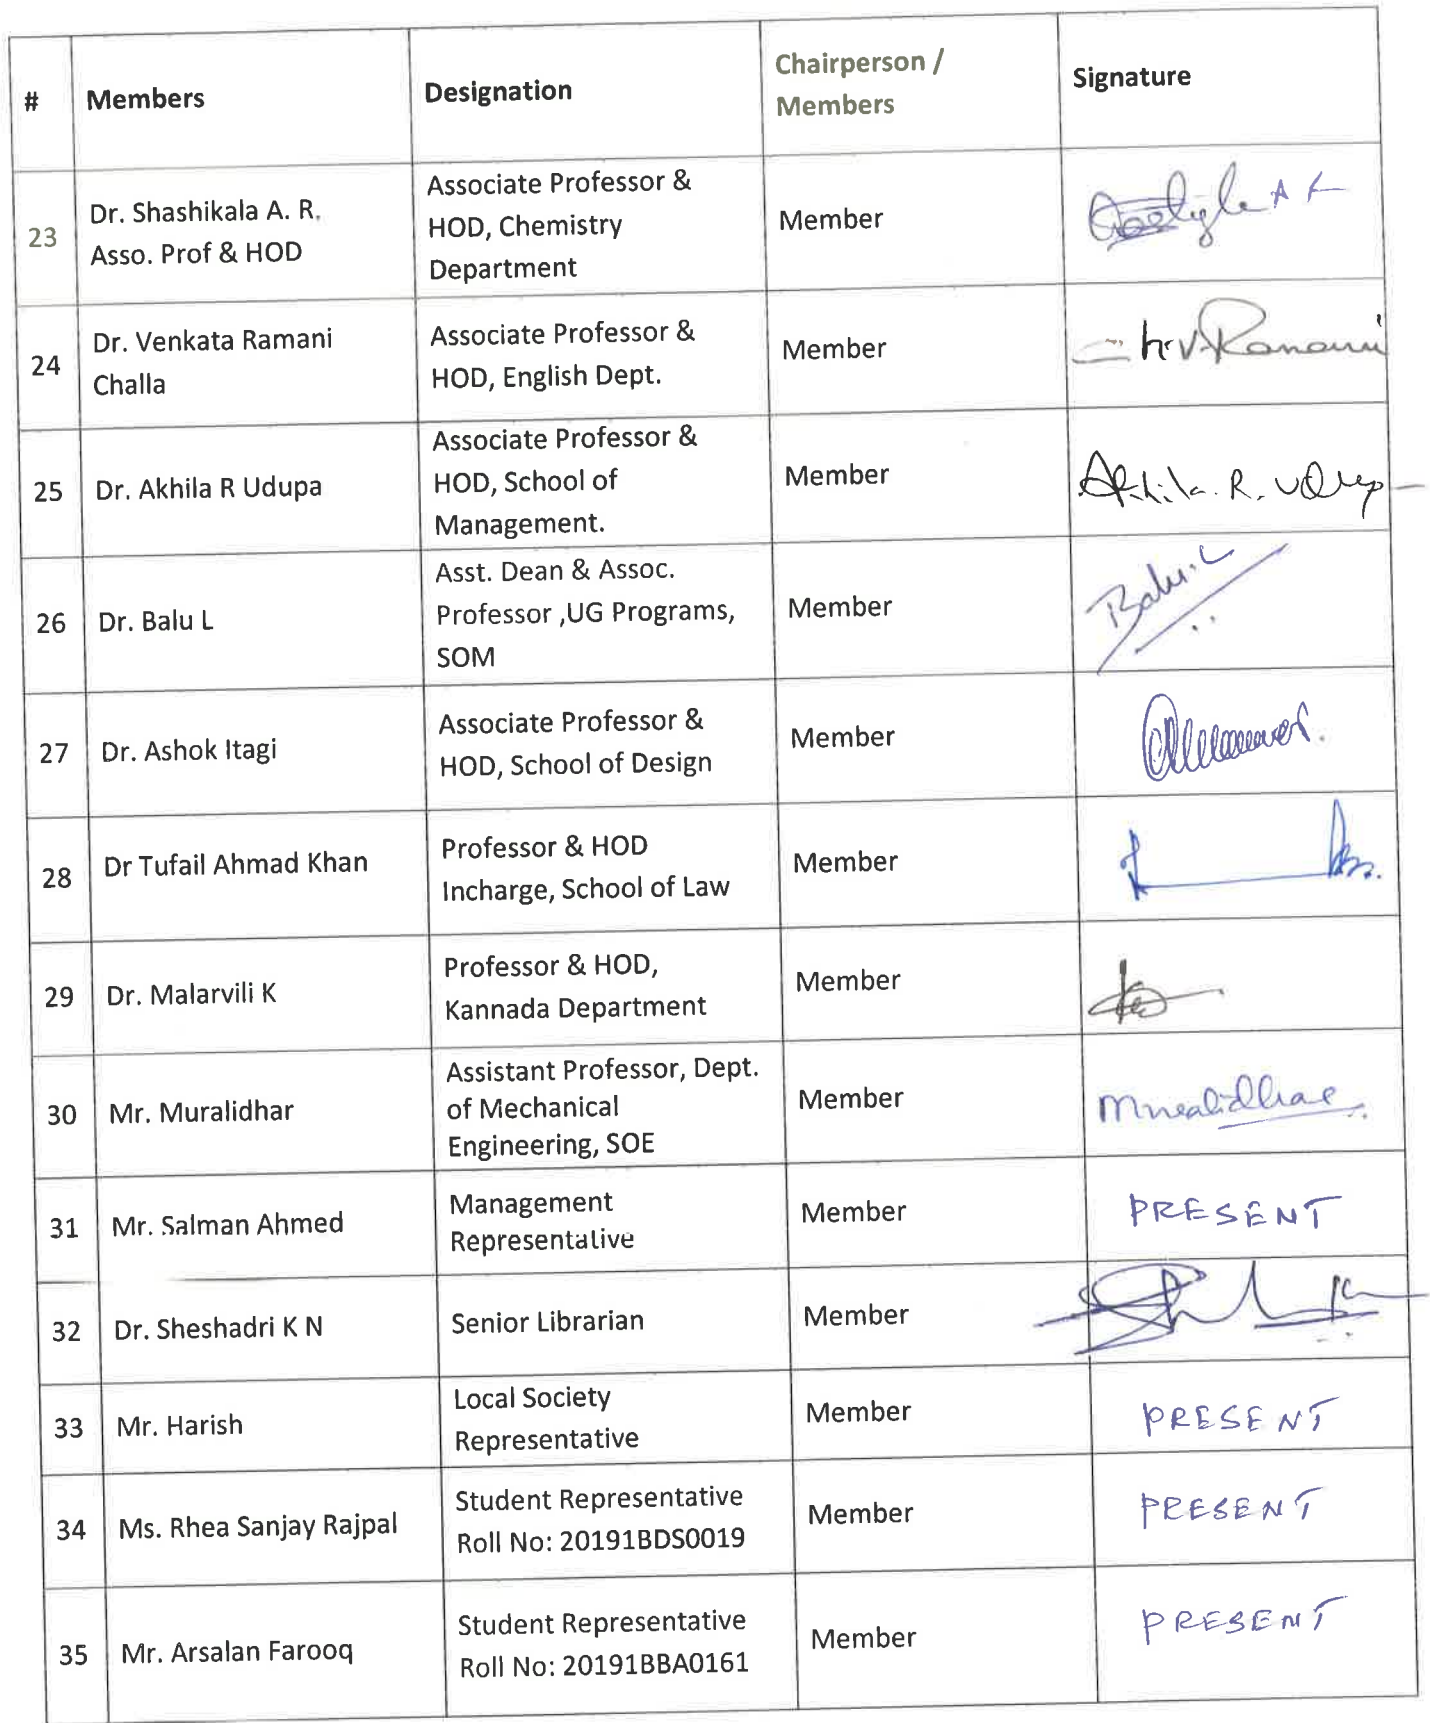 # Members Designation Chairperson / Members Signature
23 Dr. Shashikala A. R. Asso. Prof & HOD Associate Professor & HOD, Chemistry Department Member
24 Dr. Venkata Ramani Challa Associate Professor & HOD, English Dept. Member Ramani
25 Dr. Akhila R Udupa Associate Professor & HOD, School of Management. Member Akhila. R. Udupa
26 Dr. Balu L Asst. Dean & Assoc. Professor ,UG Programs, SOM Member Balu. L
27 Dr. Ashok Itagi Associate Professor & HOD, School of Design Member
28 Dr Tufail Ahmad Khan Professor & HOD Incharge, School of Law Member
29 Dr. Malarvili K Professor & HOD, Kannada Department Member
30 Mr. Muralidhar Assistant Professor, Dept. of Mechanical Engineering, SOE Member Muralidhar
31 Mr. Salman Ahmed Management Representative Member PRESENT
32 Dr. Sheshadri K N Senior Librarian Member
33 Mr. Harish Local Society Representative Member PRESENT
34 Ms. Rhea Sanjay Rajpal Student Representative Roll No: 20191BDS0019 Member PRESENT
35 Mr. Arsalan Farooq Student Representative Roll No: 20191BBA0161 Member PRESENT